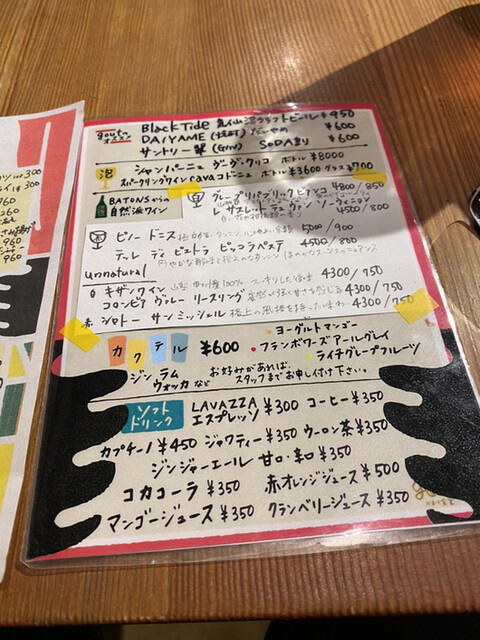 goutoオススメ
Black Tide 気仙沼クラフトビール ¥950
DAIYAME (焼酎) だいやめ ¥600
サントリー翠 (GIN) SODA割り ¥600
泡
シャンパーニュ ヴーヴ・クリコ ボトル ¥8000
スパークリングワイン cava コドーニュ ボトル ¥3600 グラス ¥700
BATONSからの
自然派ワイン
グレープリパブリック ビアンコ 4800/850
レ サスレット デュ ヴァン ソーヴィニヨン 4500/800
ピノー ドニス 5000/900
テッレ ディ ピエトラ ピッコラペステ 4500/800
unnatural
白 キザンワイン 山梨 甲州種100% スッキリした後味 4300/750
コロンビア ヴァレー リースリング 4300/750
赤 シャトー サン ミッシェル 4300/750
カクテル ¥600
・ヨーグルトマンゴー
・フランボワーズアールグレイ
・ライチグレープフルーツ
ジン ラム
ウォッカ など
お好みがあれば、
スタッフまでお申し付け下さい。
ソフト
ドリンク
LAVAZZA
エスプレッソ ¥300 コーヒー ¥350
カプチーノ ¥450 ジャワティー ¥350 ウーロン茶 ¥350
ジンジャーエール 甘口・辛口 ¥350
コカコーラ ¥350 赤オレンジジュース ¥500
マンゴージュース ¥350 クランベリージュース ¥350
960
960
960
960